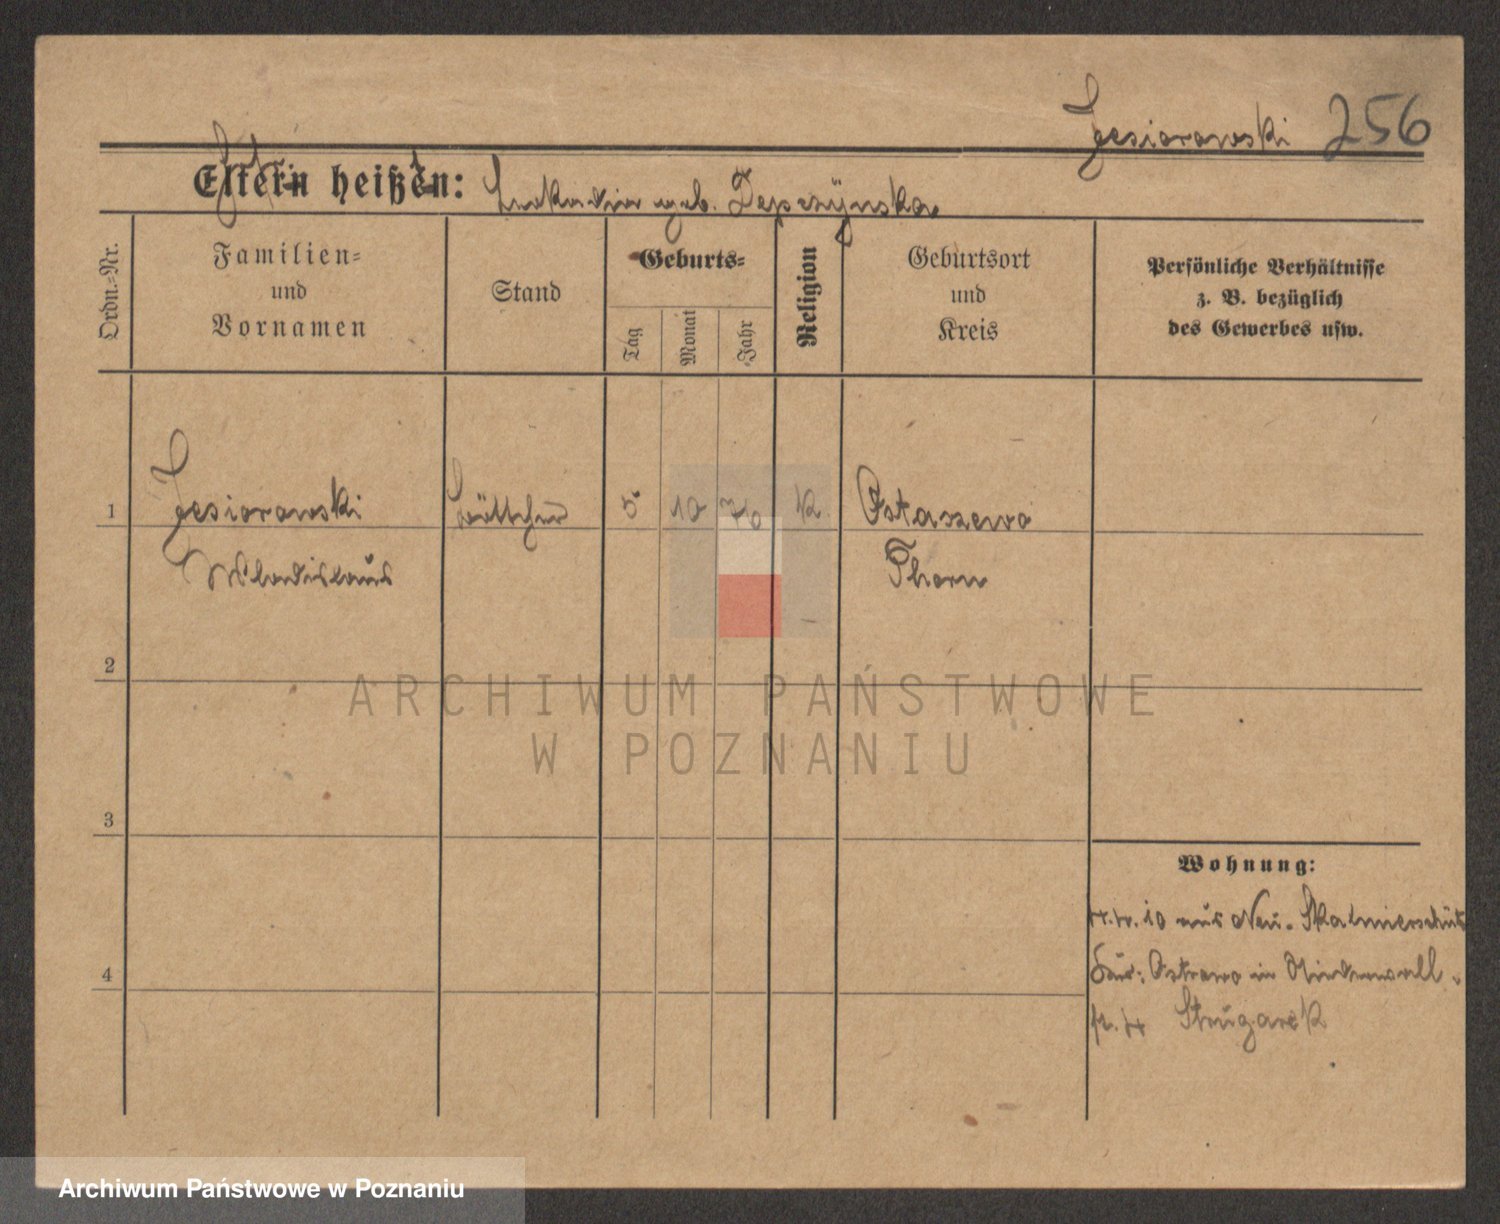 Jesiorowski 256
Eltern heißen:
geb. Depczýnska
Ordn.-Nr.
Familien-
und
Vornamen
Stand
Geburts-
Tag
Monat
Jahr
Religion
Geburtsort
und
Kreis
Persönliche Verhältnisse
z. B. bezüglich
des Gewerbes usw.
1
Jesiorowski
Böttcher
5. 10 76
K.
Ostaszewo
Wladislaus
Thorn
2
ARCHIWUM PAŃSTWOWE
W POZNANIU
3
Wohnung:
10 aus Neu-Skalmierschütz
Ostrowo in
4
Strugarek
Archiwum Państwowe w Poznaniu